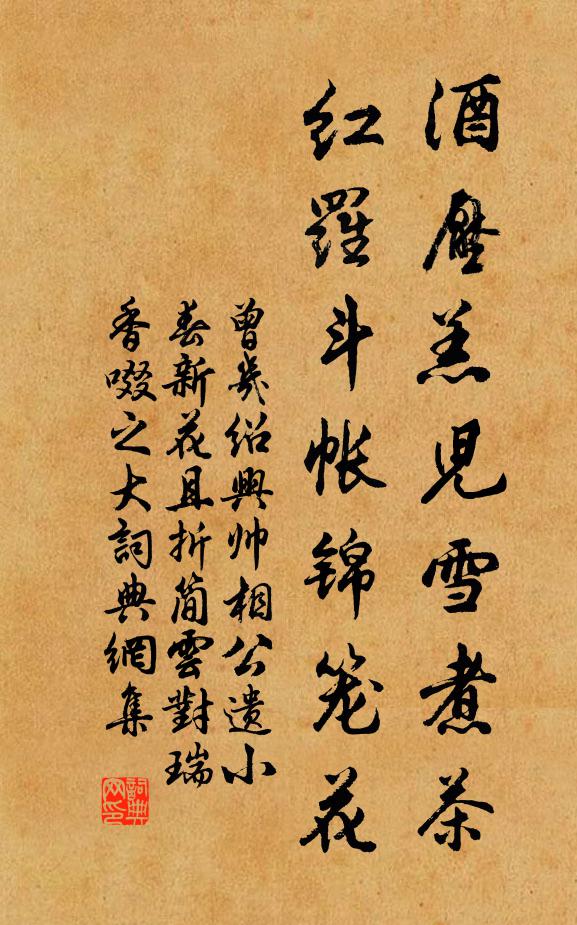 酒壓羔兒雪煮茶
红羅斗帐锦笼花
曾幾绍興帅相公遗小
春新花且折简雲對瑞
香啜之大詞典網集
詞典网印